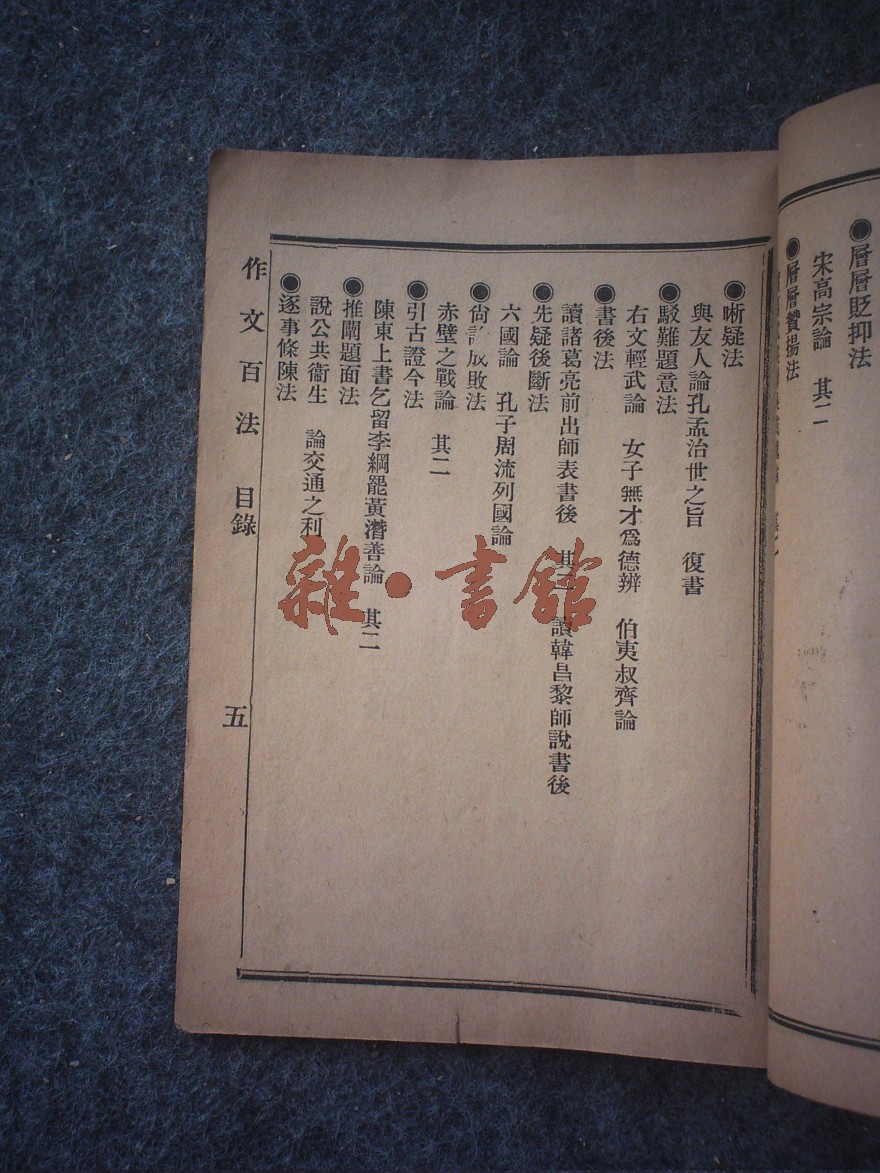 ●層層貶抑法
宋高宗論　其二
●層層贊揚法
●晰疑法
與友人論孔孟治世之旨　復書
●駁難題意法
右文輕武論　女子無才爲德辨　伯夷叔齊論
●書後法
讀諸葛亮前出師表書後　其二　讀韓昌黎師說書後
●先疑後斷法
六國論　孔子周流列國論
●尙 成敗法
赤壁之戰論　其二
●引古證今法
陳東上書乞留李綱罷黃潛善論　其二
●推闡題面法
說公共衞生　論交通之利
●逐事條陳法
作文百法　目錄　五
雜·書館